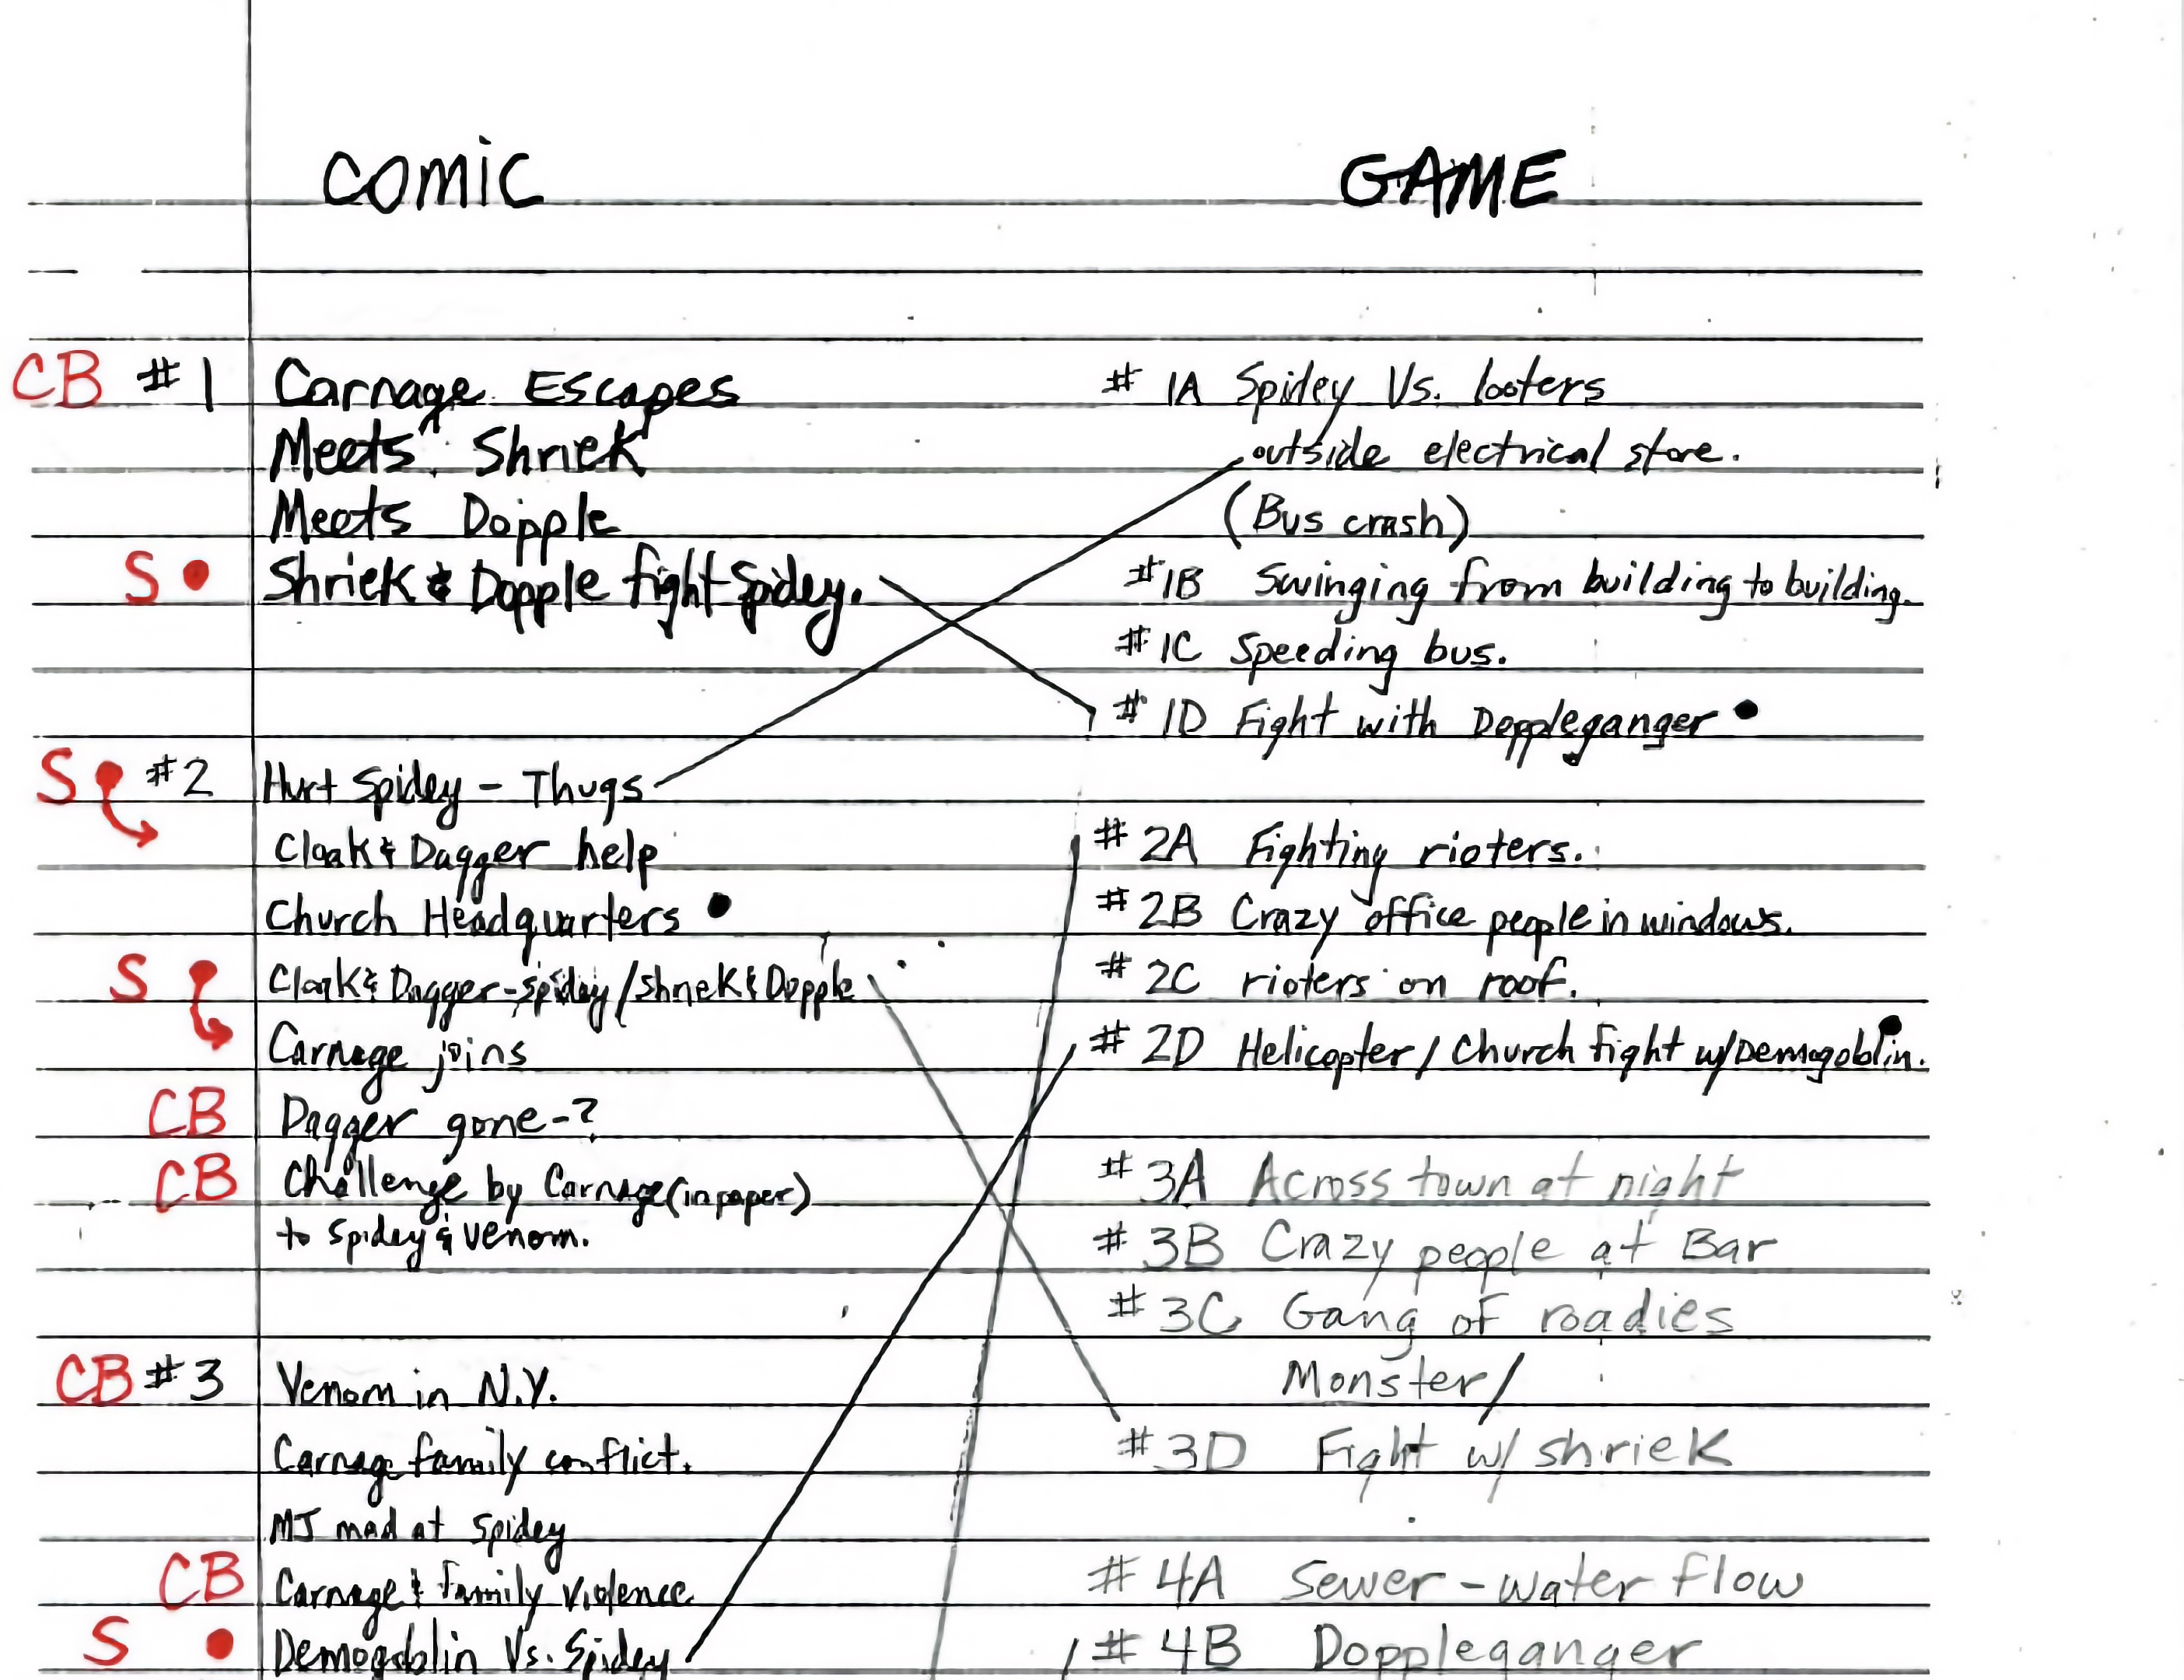 COMIC
GAME
CB #1 Carnage Escapes
Meets Shriek
Meets Dopple
S • Shriek & Dopple fight Spidey.
S • #2 Hurt Spidey - Thugs
Cloak & Dagger help
Church Headquarters •
S • Cloak & Dagger-Spidey/Shriek & Dopple
Carnage joins
CB Dagger gone-?
CB Challenge by Carnage (in paper)
to Spidey & Venom.
CB #3 Venom in N.Y.
Carnage family conflict.
MJ mad at Spidey
CB Carnage & family violence
S • Demogoblin Vs. Spidey
# 1A Spidey Vs. looters
outside electrical store.
(Bus crash)
#1B Swinging from building to building.
#1C Speeding bus.
# 1D Fight with Doppleganger •
# 2A Fighting rioters.
# 2B Crazy office people in windows.
# 2C rioters on roof.
# 2D Helicopter / Church fight w/Demogoblin. •
# 3A Across town at night
# 3B Crazy people at Bar
# 3C Gang of roadies
Monster/
# 3D Fight w/ shriek
# 4A Sewer - water flow
# 4B Doppleganger